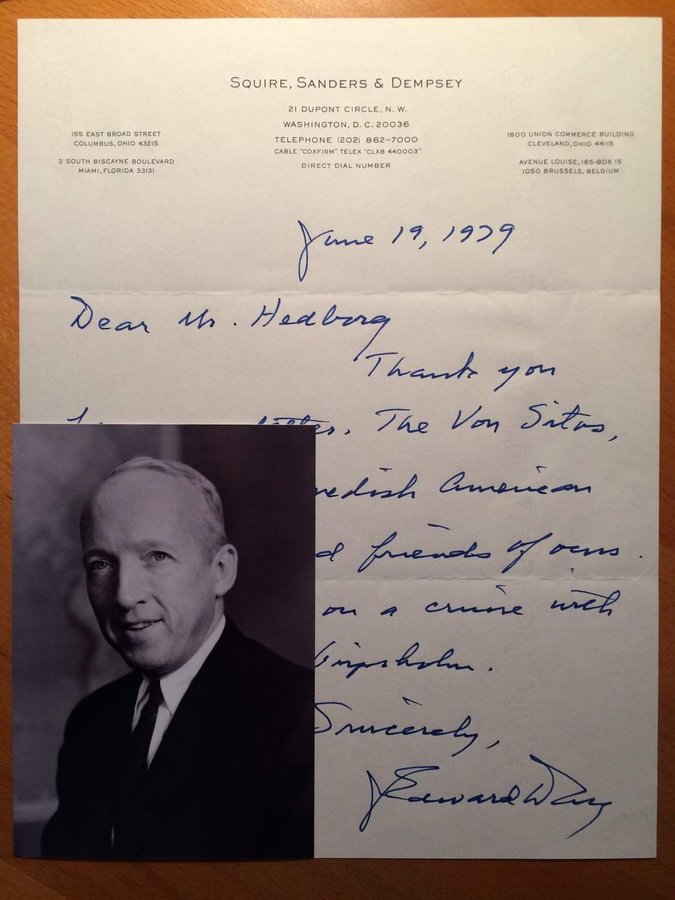 SQUIRE, SANDERS & DEMPSEY
21 DUPONT CIRCLE, N. W.
WASHINGTON, D. C. 20036
TELEPHONE (202) 862-7000
CABLE "COXFIRM" TELEX "CLXB 440003"
DIRECT DIAL NUMBER
155 EAST BROAD STREET
COLUMBUS, OHIO 43215
2 SOUTH BISCAYNE BOULEVARD
MIAMI, FLORIDA 33131
1800 UNION COMMERCE BUILDING
CLEVELAND, OHIO 44115
AVENUE LOUISE, 165-BOX 15
1050 BRUSSELS, BELGIUM
June 19, 1979
Dear Mr. Hedborg
Thank you
The Von Sitas,
wedish American
d friends of ours.
on a cruise with
ripsholm.
Sincerely,
J Edward Day